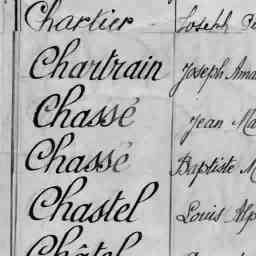 Chartier Joseph
Chartrain Joseph Ama
Chassé Jean Ma
Chassé Baptiste M
Chastel Louis Alp
Châtel